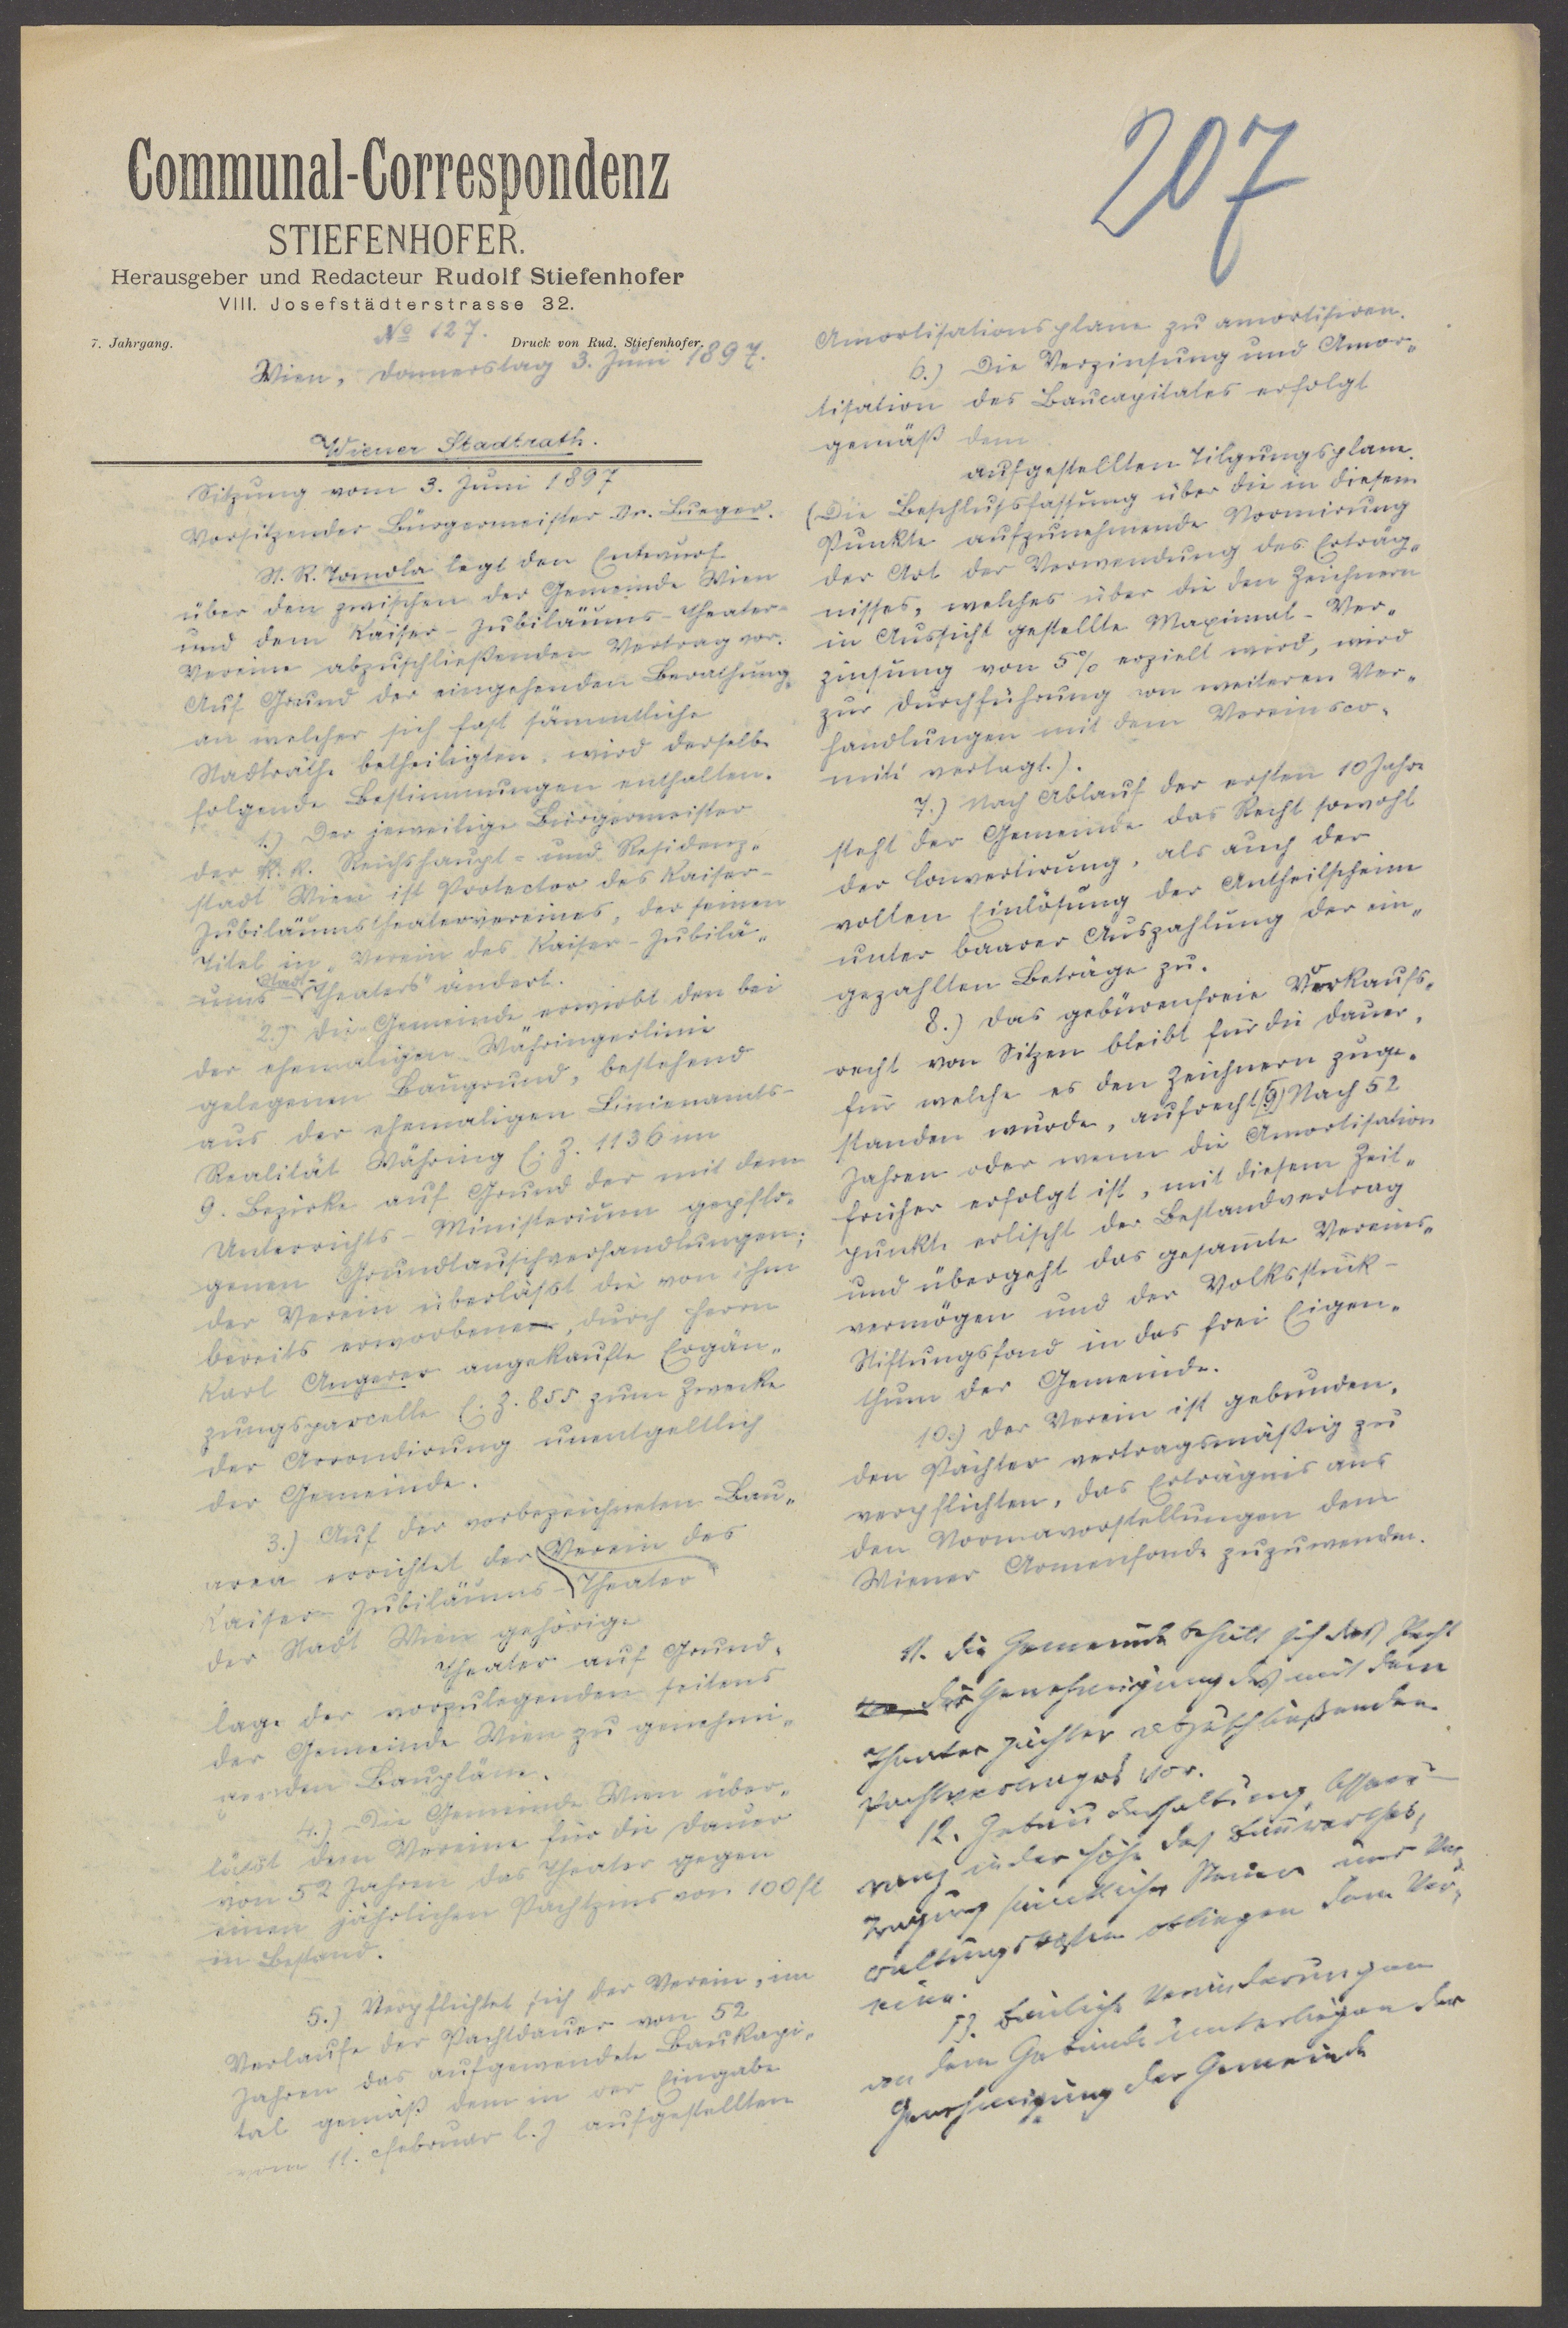 207
Communal-Correspondenz
STIEFENHOFER.
Herausgeber und Redacteur Rudolf Stiefenhofer
VIII. Josefstädterstrasse 32.
No 127.
7. Jahrgang.
Druck von Rud. Stiefenhofer.
Wien, Donnerstag 3. Juni 1897.
Wiener Stadtrath.
Sitzung vom 3. Juni 1897
Vorsitzender Bürgermeister Dr. Lueger.
St. R. Tomola legt den Entwurf
über den zwischen der Gemeinde Wien
und dem Kaiser-Jubiläums-Theater-
Vereine abzuschließenden Vertrag vor.
Auf Grund der eingehenden Berathung,
an welcher sich fast sämmtliche
Stadträthe betheiligten, wird derselbe
folgende Bestimmungen enthalten.
1.) Der jeweilige Bürgermeister
der k. k. Reichshaupt- und Residenz-
stadt Wien ist Protector des Kaiser-
Jubiläumstheatervereines, der seinen
Titel in „Verein des Kaiser-Jubilä-
ums-Stadttheaters" ändert.
2.) Die Gemeinde erwirbt den bei
der ehemaligen Währingerlinie
gelegenen Baugrund, bestehend
aus der ehemaligen Linienamts-
Realität Währing E. Z. 1136 im
9. Bezirke auf Grund der mit dem
Unterrichts-Ministerium gepflo-
genen Grundtauschverhandlungen;
der Verein überläßt die von ihm
bereits erworbene, durch Herrn
Karl Angerer angekaufte Ergän-
zungsparcelle E. Z. 855 zum Zwecke
der Arrondirung unentgeltlich
der Gemeinde.
3.) Auf der vorbezeichneten Bau-
area errichtet der Verein das
Kaiser-Jubiläums-Theater
der Stadt Wien gehörige
Theater auf Grund-
lage der vorzulegenden seitens
der Gemeinde Wien zu genehmi-
genden Baupläne.
4.) Die Gemeinde Wien über-
läßt dem Vereine für die Dauer
von 52 Jahren das Theater gegen
einen jährlichen Pachtzins von 100 fl
in Bestand.
5.) Verpflichtet sich der Verein, im
Verlaufe der Pachtdauer von 52
Jahren das aufgewendete Baukapi-
tal gemäß dem in der Eingabe
vom 11. Februar l. J. aufgestellten
Amortisationsplane zu amortisiren.
6.) Die Verzinsung und Amor-
tisation des Baucapitales erfolgt
gemäß dem
aufgestellten Tilgungsplane.
(Die Beschlußfassung über die in diesem
Punkte aufzunehmende Normirung
der Art der Verwendung des Erträg-
nisses, welches über die den Zeichnern
in Aussicht gestellte Maximal-Ver-
zinsung von 5% erzielt wird, wird
zur Durchführung von weiteren Ver-
handlungen mit dem Vereinsco-
mité vertagt.).
7.) Nach Ablauf der ersten 10 Jahre
steht der Gemeinde das Recht sowohl
der Convertirung, als auch der
vollen Einlösung der Antheilscheine
unter baarer Auszahlung der ein-
gezahlten Beträge zu.
8.) Das gebürenfreie Vorkaufs-
recht von Sitzen bleibt für die Dauer,
für welche es den Zeichnern zuge-
standen wurde, aufrecht. 9) Nach 52
Jahren oder wenn die Amortisation
früher erfolgt ist, mit diesem Zeit-
punkte erlischt der Bestandvertrag
und übergeht das gesamte Vereins-
vermögen und der Volksstück-
Stiftungsfond in das freie Eigen-
thum der Gemeinde.
10.) Der Verein ist gebunden,
den Pächter vertragsmäßig zu
verpflichten, das Erträgnis aus
den Normavorstellungen dem
Wiener Armenfonde zuzuwenden.
11. Die Gemeinde behält sich das Recht
der Genehmigung des mit dem
Theaterpächter abzuschließenden
Pachtvertrages vor.
12. Gebäudeerhaltung, Assecu-
ranz in der Höhe des Bauwerthes,
Tragung sämtlicher Steuern und Ver-
waltungskosten obliegen dem Ver-
eine.
13. Bauliche Veränderungen
an dem Gebäude unterliegen der
Genehmigung der Gemeinde